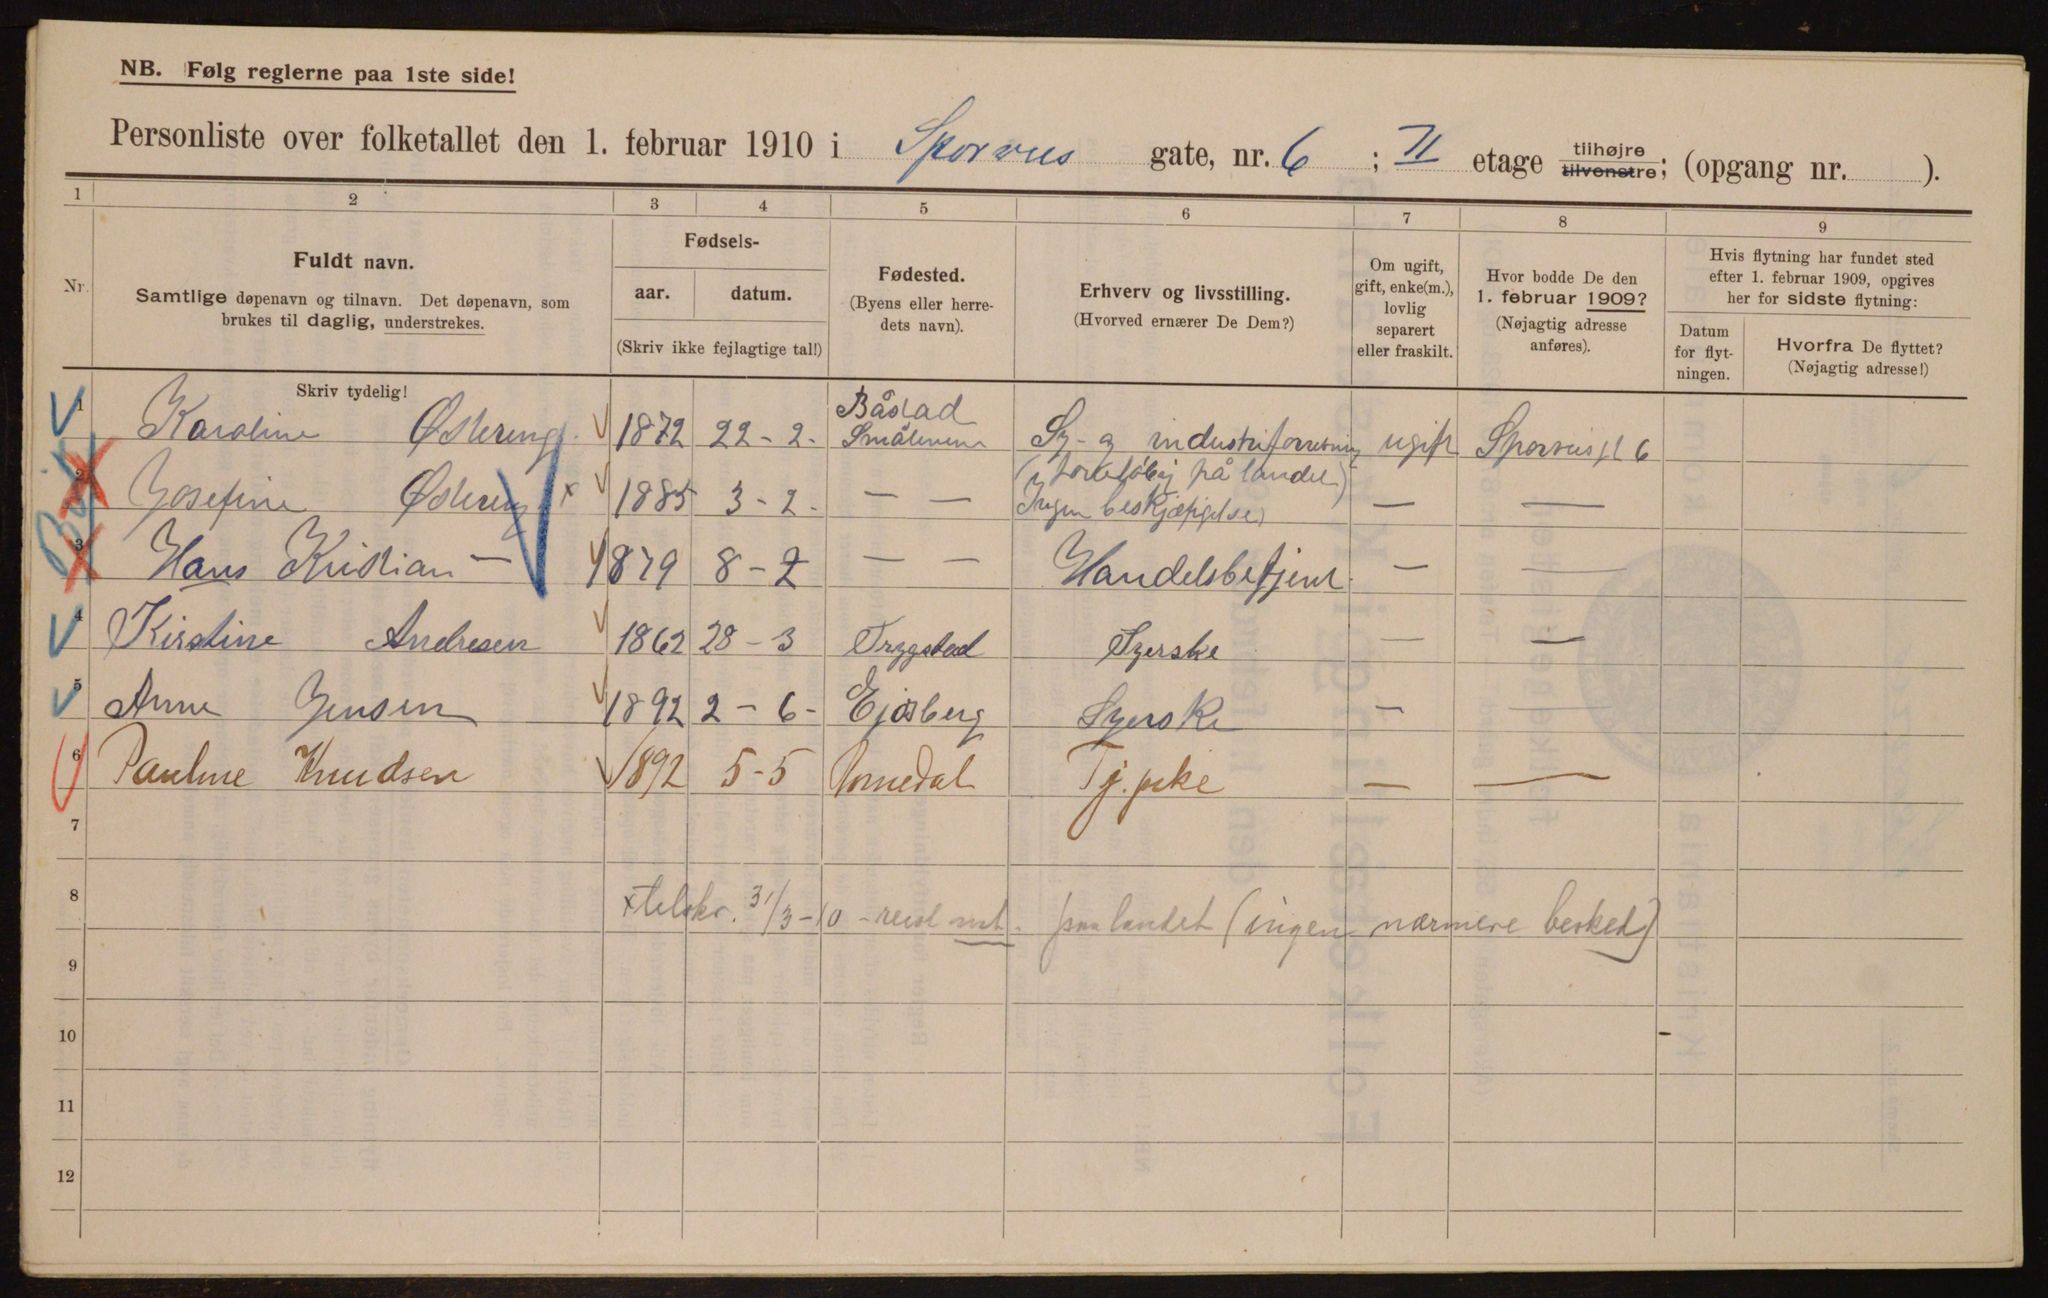 NB. Følg reglerne paa 1ste side!
Personliste over folketallet den 1. februar 1910 i Sporveis gate, nr. 6 ; II etage tilhøjre tilvenstre; (opgang nr. ).
1 2 3 4 5 6 7 8 9
Nr.
Fuldt navn.
Samtlige døpenavn og tilnavn. Det døpenavn, som
brukes til daglig, understrekes.
Skriv tydelig!
Fødsels-
aar. datum.
(Skriv ikke fejlagtige tal!)
Fødested.
(Byens eller herre-
dets navn).
Erhverv og livsstilling.
(Hvorved ernærer De Dem?)
Om ugift,
gift, enke(m.),
lovlig
separert
eller fraskilt.
Hvor bodde De den
1. februar 1909?
(Nøjagtig adresse
anføres).
Hvis flytning har fundet sted
efter 1. februar 1909, opgives
her for sidste flytning:
Datum
for flyt-
ningen.
Hvorfra De flyttet?
(Nøjagtig adresse!)
1 Karoline Østereng 1872 22-2- Båstad Smålenene Sy- og industriforretning ugift Sporveisgt 6
2 Josefine Østereng x 1885 3-2- — — (foreløbig på landet) Ingen beskjæftigelse) — —
3 Hans Kristian — 1879 8-2 — — Handelsbetjent — —
4 Kirstine Andresen 1862 28-3 Trygstad Syerske — —
5 Anne Jensen 1892 2-6- Ejdsberg Syerske — —
6 Pauline Knudsen 1892 5-5 Romedal Tj.pike — —
7
8 x tilskr. 31/3-10 - reist paa landet (ingen nærmere besked)
9
10
11
12